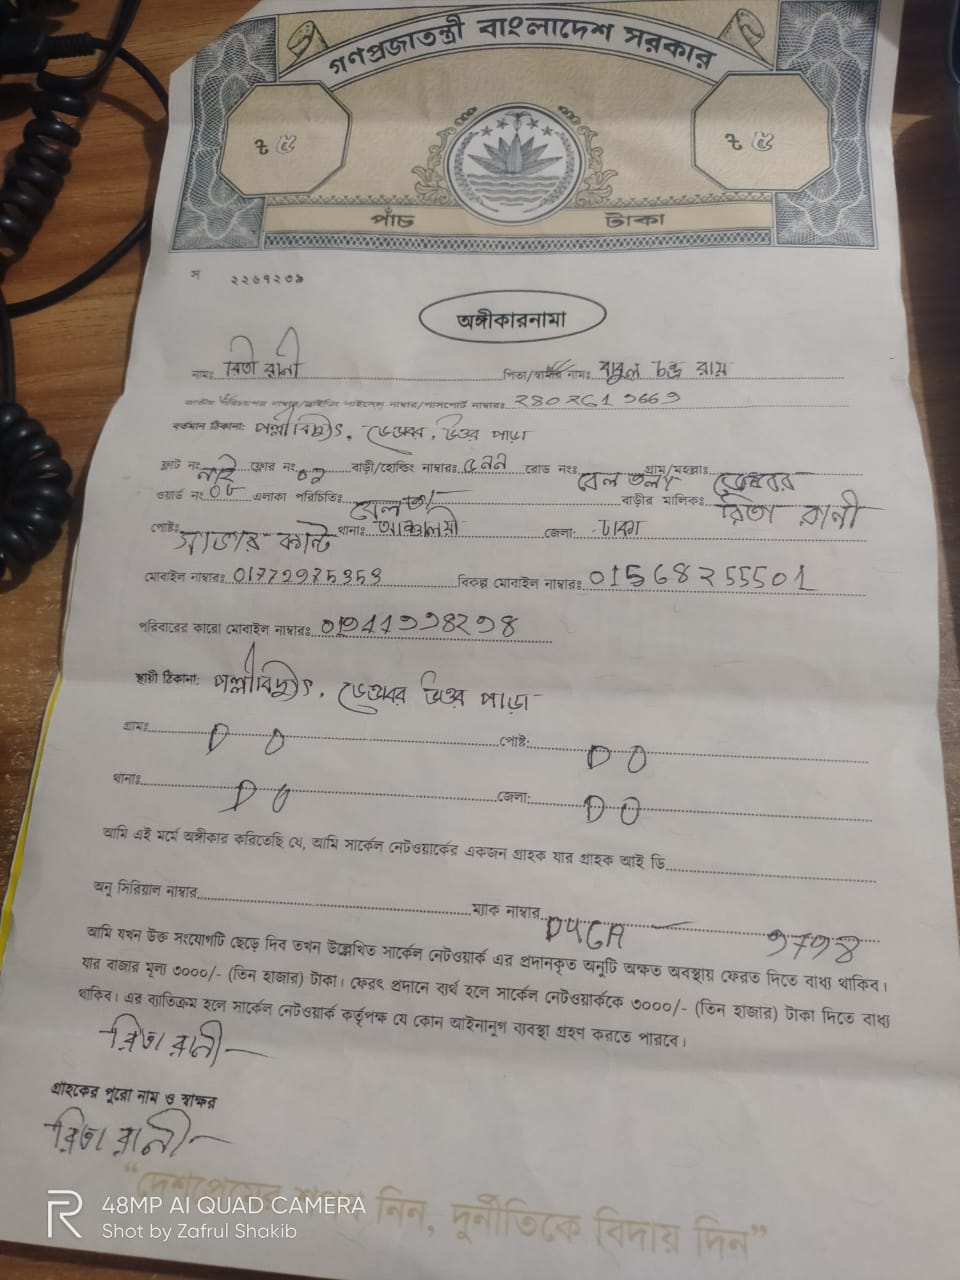 গণপ্রজাতন্ত্রী বাংলাদেশ সরকার
৳ ৫ ৳ ৫
পাঁচ টাকা
স ২২৬৭২৩৯
অঙ্গীকারনামা
নামঃ রিতা রানী পিতা/স্বামীর নামঃ বাবুল চন্দ্র রায়
জাতীয় পরিচয়পত্র নাম্বার/ড্রাইভিং লাইসেন্স নাম্বার/পাসপোর্ট নাম্বারঃ
বর্তমান ঠিকানা: পল্লীবিদ্যুৎ, ডেন্ডাবর, উত্তর পাড়া
ফ্লাট নং নাই ফ্লোর নং বাড়ী/হোল্ডিং নাম্বারঃ রোড নংঃ বেল তলা গ্রাম/মহল্লাঃ ডেন্ডাবর
ওয়ার্ড নং ০৮ এলাকা পরিচিতিঃ বেলতলা বাড়ীর মালিকঃ রিতা রানী
পোষ্টঃ সাভার কান্ট থানাঃ আশুলিয়া জেলা: ঢাকা
মোবাইল নাম্বারঃ বিকল্প মোবাইল নাম্বারঃ 01568255501
পরিবারের কারো মোবাইল নাম্বারঃ
স্থায়ী ঠিকানা: পল্লীবিদ্যুৎ, ডেন্ডাবর উত্তর পাড়া
গ্রামঃ D O পোষ্ট: D O
থানাঃ D O জেলা: D O
আমি এই মর্মে অঙ্গীকার করিতেছি যে, আমি সার্কেল নেটওয়ার্কের একজন গ্রাহক যার গ্রাহক আই ডি
অনু সিরিয়াল নাম্বার ম্যাক নাম্বার
আমি যখন উক্ত সংযোগটি ছেড়ে দিব তখন উল্লেখিত সার্কেল নেটওয়ার্ক এর প্রদানকৃত অনুটি অক্ষত অবস্থায় ফেরত দিতে বাধ্য থাকিব।
যার বাজার মূল্য ৩০০০/- (তিন হাজার) টাকা। ফেরৎ প্রদানে ব্যর্থ হলে সার্কেল নেটওয়ার্ককে ৩০০০/- (তিন হাজার) টাকা দিতে বাধ্য
থাকিব। এর ব্যতিক্রম হলে সার্কেল নেটওয়ার্ক কর্তৃপক্ষ যে কোন আইনানুগ ব্যবস্থা গ্রহণ করতে পারবে।
রিতা রানী
গ্রাহকের পুরো নাম ও স্বাক্ষর
রিতা রানী
“দেশপ্রেমের শপথ নিন, দুর্নীতিকে বিদায় দিন”
48MP AI QUAD CAMERA
Shot by Zafrul Shakib